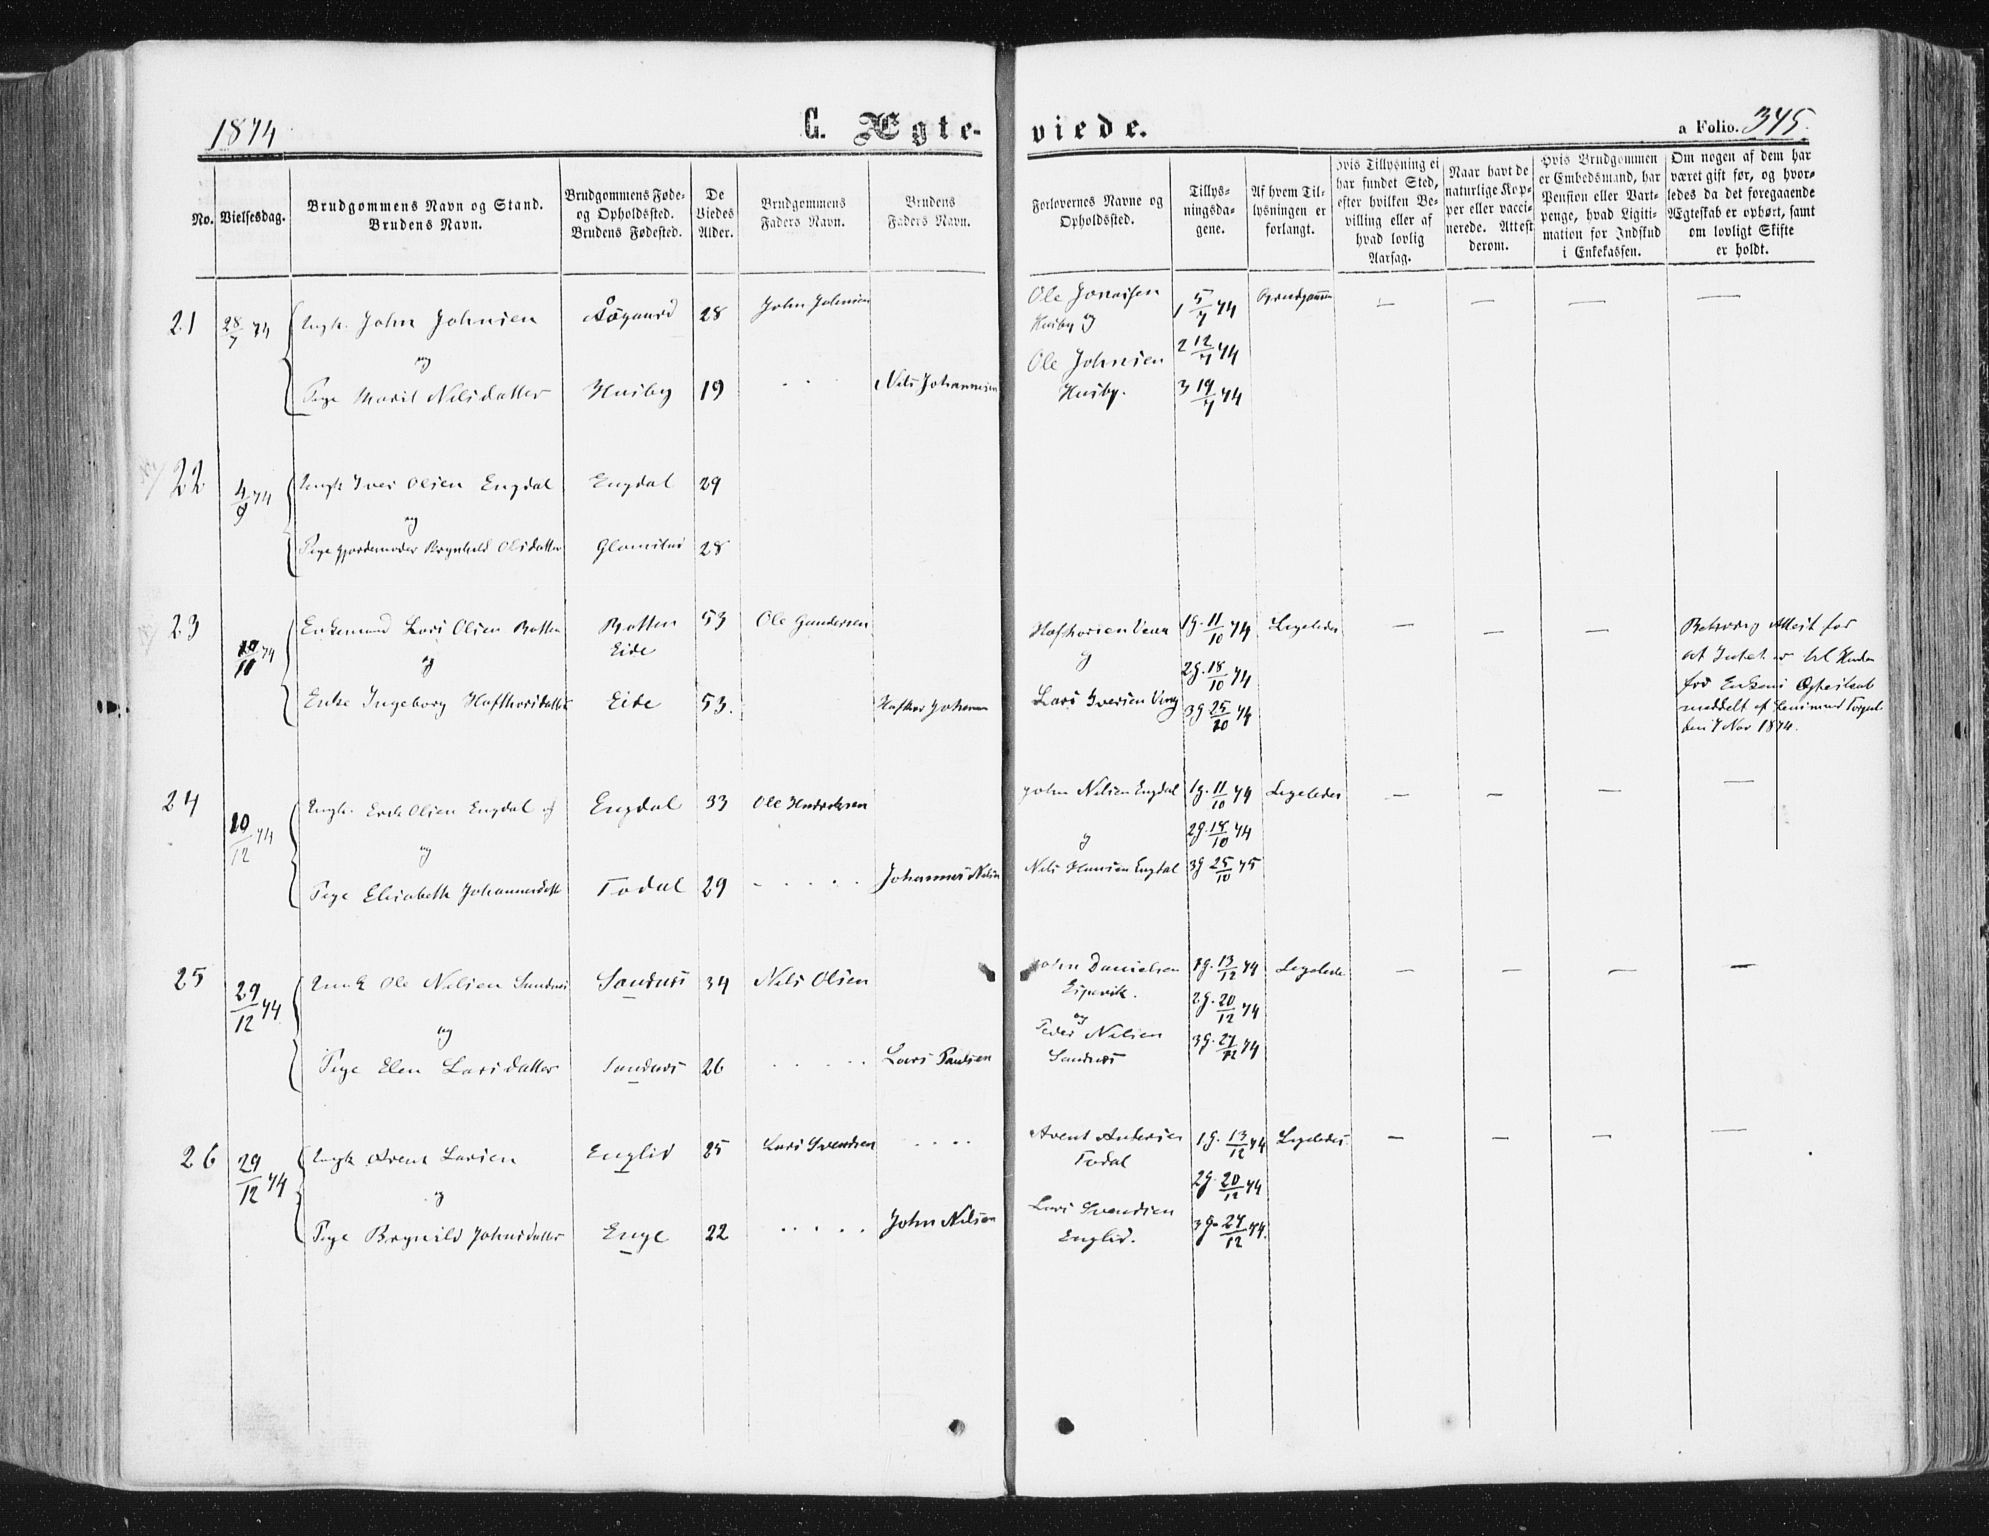 1874
C. Ægte-
viede.
a Folio. 345.
No.
Vielsesdag.
Brudgommens Navn og Stand.
Brudens Navn.
Brudgommens Føde-
og Opholdssted.
Brudens Fødested.
De
Viedes
Alder.
Brudgommens
Faders Navn.
Brudens
Faders Navn.
Forlovernes Navne og
Opholdssted.
Tillys-
ningsda-
gene.
Af hvem Til-
lysningen er
forlangt.
Hvis Tillysning ei
har fundet Sted,
efter hvilken Be-
villing eller af
hvad lovlig
Aarsag.
Naar havt de
naturlige Kop-
per eller vacci-
nerede. Attest
derom.
Hvis Brudgommen
er Embedsmand, har
Pension eller Vart-
penge, hvad Ligiti-
mation for Indskud
i Enkekassen.
Om nogen af dem har
været gift før, og hvor-
ledes da det foregaaende
Ægteskab er ophørt, samt
om lovligt Skifte
er holdt.
21 28/7 74 Ungk. John Johnsen Aasgaard 28 John Johnsen
og
Pige Marit Nilsdatter Husby 19 . . . Nils Johannesen
Ole Jonassen
Husby og
Ole Johnsen
Husby.
1 5/7 74
2 12/7 74
3 19/7 74
Brudgommen — — — —
22 4/9 74 Ungk Iver Olsen Engdal Engdal 29
og
Pige Gjordemoder Brynhild Olsdatter 28
23 10/11 74 Enkemand Lars Olsen Botten Botten 53 Ole Gundersen
Eide
og
Enke Ingeborg Hafthorsdatter Eide 53. Hafthor
Hafthorsen
og
Lars Iversen
1g. 11/10 74
2g. 18/10 74
3g 25/10 74
Ligeledes — — —
Attest for
at Intet er til Hinder
for Enkens Ægteskab
meddelt af
den 7 Nov 1874.
24 10/12 74 Ungk. Erik Olsen Engdal Engdal 33 Ole Hendriksen
og
Pige Elisabeth Johannesdatt Todal 29 . . . . . Johannes Nilsen
John Nilsen Engdal
og
Nils Hansen Engdal
1g. 11/10 74
2g. 18/10 74
3g 25/10 75
Ligeledes — — — —
25 29/12 74 Ungk Ole Nilsen Sandnes Sandnes 34 Nils Olsen
og
Pige Elen Larsdatter Sandnes 26 . . . . . Lars Paulsen
John Danielsen
og
Peder Nilsen
Sandnes
1g. 13/12 74
2g. 20/12 74
3g. 27/12 74
Ligelede — — — —
26 29/12 74 Ungk Arent Larsen Englid 25 Lars Svendsen . . . .
og
Pige Brynild Johnsdatter Enge 22 . . . . . John Nilsen
Arent Andersen
Todal
Lars Svendsen
Englid.
1g. 13/12 74
2g. 20/12 74
3g. 27/12 74.
Ligeledes — — — —